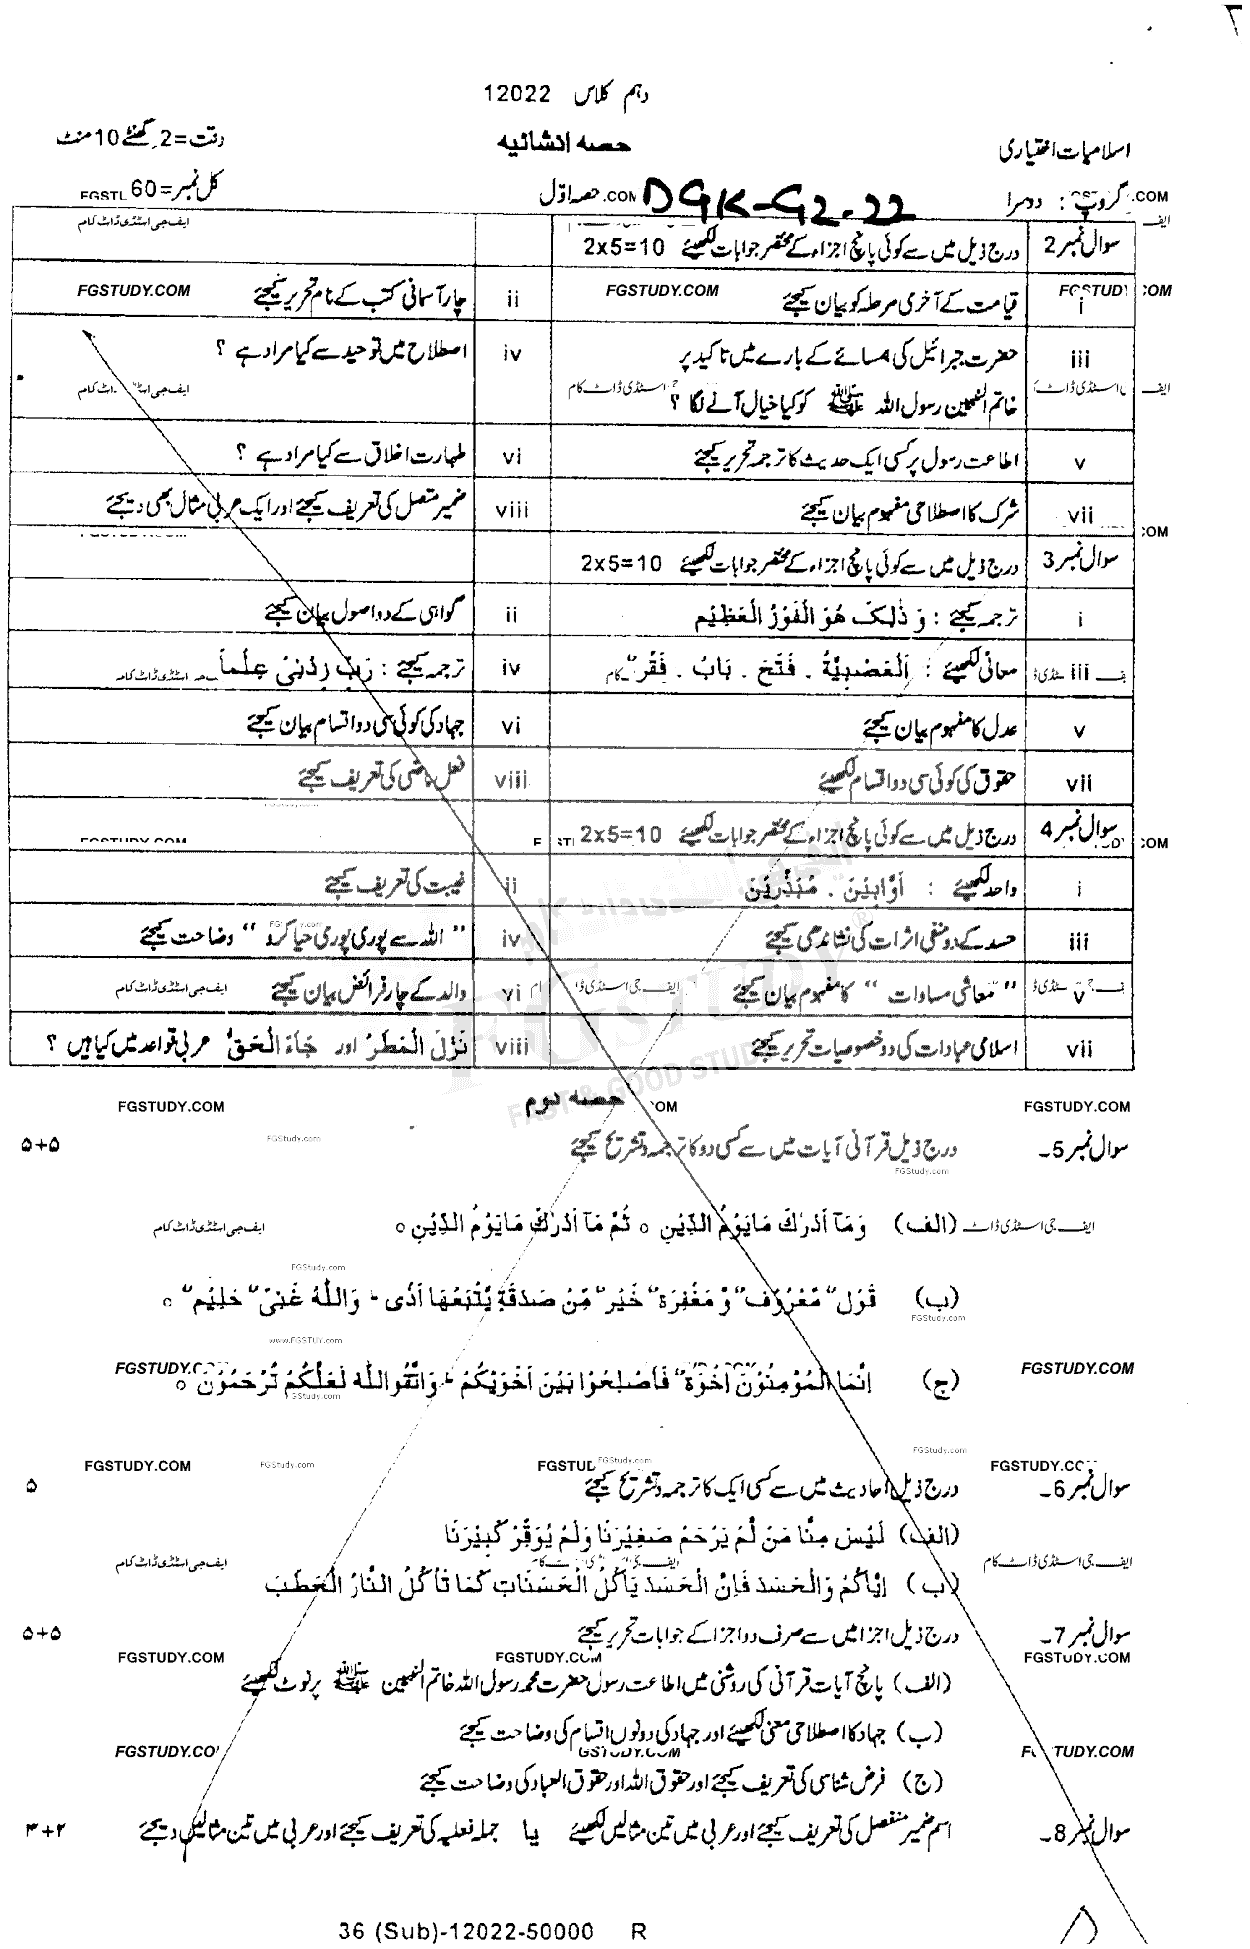 دہم کلاس 12022
اسلامیات اختیاری حصہ انشائیہ وقت=2 گھنٹے 10 منٹ
گروپ : دوسرا DGK-G2-22 حصہ اوّل کل نمبر=60
سوال نمبر 2 درج ذیل میں سے کوئی پانچ اجزاء کے مختصر جوابات لکھیئے 2x5=10
i قیامت کے آخری مرحلہ کو بیان کیجئے ii چار آسمانی کتب کے نام تحریر کیجئے
iii حضرت جبرائیل کی ہمسائے کے بارے میں تاکید پر iv اصطلاح میں توحید سے کیا مراد ہے ؟
خاتم النبیین رسول اللہ ﷺ کو کیا خیال آنے لگا ؟
v اطاعت رسول پر کسی ایک حدیث کا ترجمہ تحریر کیجئے vi طہارت اخلاق سے کیا مراد ہے ؟
vii شرک کا اصطلاحی مفہوم بیان کیجئے viii ضمیر متصل کی تعریف کیجئے اور ایک عربی مثال بھی دیجئے
سوال نمبر 3 درج ذیل میں سے کوئی پانچ اجزاء کے مختصر جوابات لکھیئے 2x5=10
i ترجمہ کیجئے : وَ ذٰلِکَ هُوَ الْفَوْزُ الْعَظِیْم ii گواہی کے دو اصول بیان کیجئے
iii معانی لکھیئے : اَلْعَصْبِیَّةُ ۔ فَتَحَ ۔ بَابٌ ۔ فَقْرٌ iv ترجمہ کیجئے : رَبِّ زِدْنِیْ عِلْماً
v عدل کا مفہوم بیان کیجئے vi جہاد کی کوئی سی دو اقسام بیان کیجئے
vii حقوق کی کوئی سی دو اقسام لکھیئے viii فعل ماضی کی تعریف کیجئے
سوال نمبر 4 درج ذیل میں سے کوئی پانچ اجزاء کے مختصر جوابات لکھیئے 2x5=10
i واحد لکھیئے : اَوَّابِیْنَ ۔ مُنْذَرِیْنَ ii غیبت کی تعریف کیجئے
iii حسد کے دو منفی اثرات کی نشاندہی کیجئے iv " اللہ سے پوری پوری حیا کرو " وضاحت کیجئے
v " معاشی مساوات " کا مفہوم بیان کیجئے vi والد کے چار فرائض بیان کیجئے
vii اسلامی عبادات کی دو خصوصیات تحریر کیجئے viii نَزَلَ الْمَطَرُ اور جَاءَ الْحَقُّ عربی قواعد میں کیا ہیں ؟
حصہ دوم
سوال نمبر 5۔ درج ذیل قرآنی آیات میں سے کسی دو کا ترجمہ و تشریح کیجئے ۵+۵
(الف) وَمَآ اَدْرٰکَ مَایَوْمُ الدِّیْنِ ○ ثُمَّ مَآ اَدْرٰکَ مَایَوْمُ الدِّیْنِ ○
(ب) قَوْلٌ مَّعْرُوْفٌ وَّ مَغْفِرَةٌ خَیْرٌ مِّنْ صَدَقَةٍ یَّتْبَعُهَا اَذًی ؕ وَاللّٰهُ غَنِیٌّ حَلِیْمٌ ○
(ج) اِنَّمَا الْمُؤْمِنُوْنَ اِخْوَةٌ فَاَصْلِحُوْا بَیْنَ اَخَوَیْکُمْ ۚ وَاتَّقُوا اللّٰهَ لَعَلَّکُمْ تُرْحَمُوْنَ ○
سوال نمبر 6۔ درج ذیل احادیث میں سے کسی ایک کا ترجمہ و تشریح کیجئے ۵
(الف) لَیْسَ مِنَّا مَنْ لَّمْ یَرْحَمْ صَغِیْرَنَا وَلَمْ یُوَقِّرْ کَبِیْرَنَا
(ب) اِیَّاکُمْ وَالْحَسَدَ فَاِنَّ الْحَسَدَ یَأکُلُ الْحَسَنَاتِ کَمَا تَأکُلُ النَّارُ الْحَطَبَ
سوال نمبر 7۔ درج ذیل اجزا میں سے صرف دو اجزا کے جوابات تحریر کیجئے ۵+۵
(الف) پانچ آیات قرآنی کی روشنی میں اطاعت رسول حضرت محمد رسول اللہ خاتم النبیین ﷺ پر نوٹ لکھیئے
(ب) جہاد کا اصطلاحی معنی لکھیئے اور جہاد کی دونوں اقسام کی وضاحت کیجئے
(ج) فرض شناسی کی تعریف کیجئے اور حقوق اللہ اور حقوق العباد کی وضاحت کیجئے
سوال نمبر 8۔ اسم ضمیر منفصل کی تعریف کیجئے اور عربی میں تین مثالیں لکھیئے یا جملہ فعلیہ کی تعریف کیجئے اور عربی میں تین مثالیں دیجئے ۲+۳
36 (Sub)-12022-50000 R